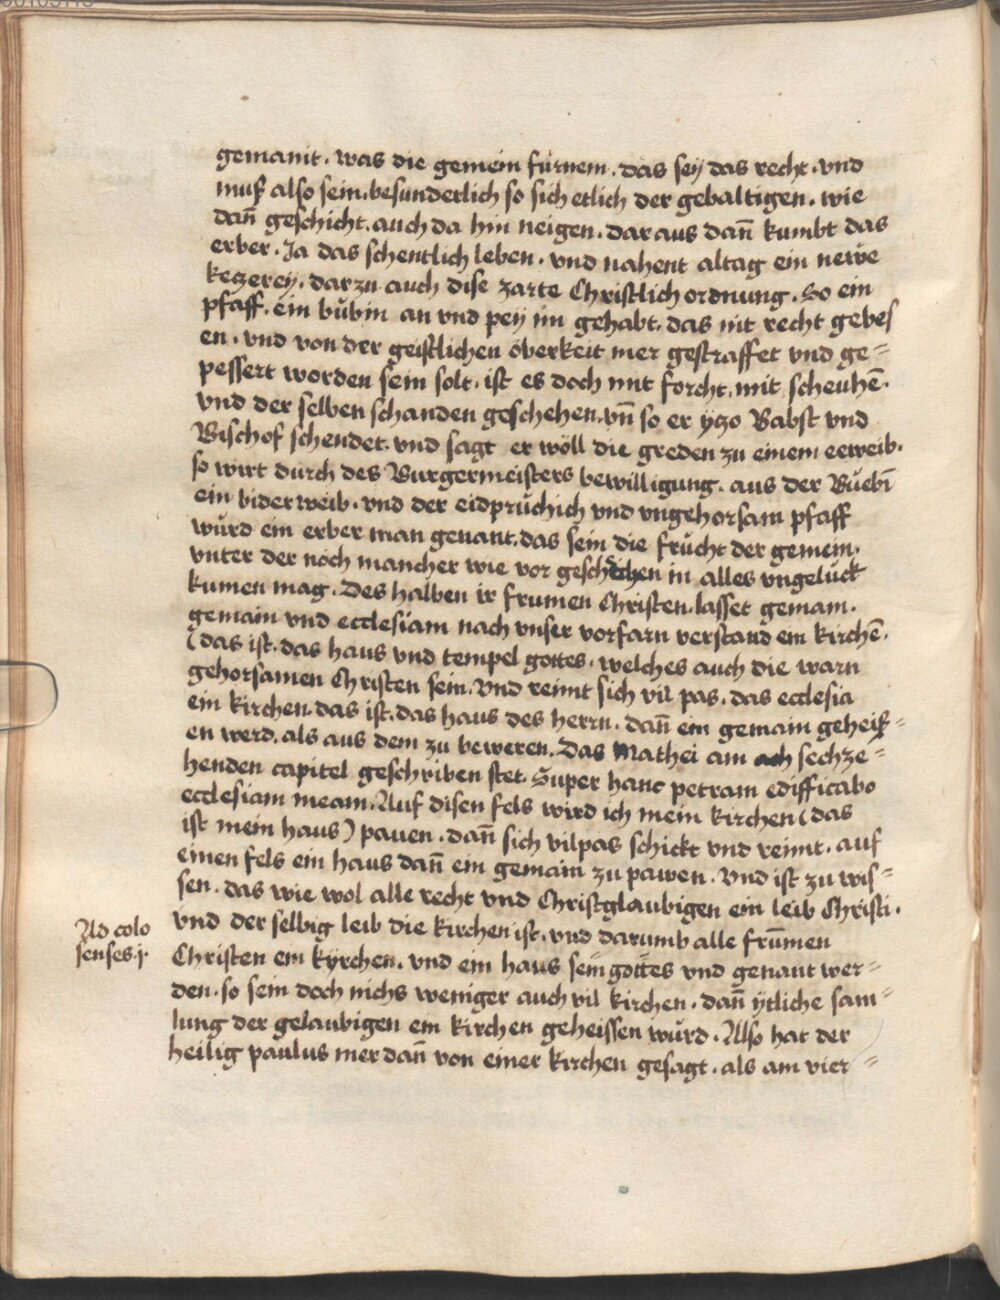 gemanit. was die gemein fürnem. das sey das recht. vnd
muß also sein. besunderlich so sich etlich der gebaltigen. wie
dañ geschicht. auch da hin neigen. dar aus dañ kumbt das
erber. Ja das schentlich leben. vnd nahent altag ein newe
kezerey. dar zu auch dise zarte Christlich ordnung. So ein
pfaff. ein bübin an vnd pey im gehabt. das nit recht gebes
en. vnd von der geistlichen öberkeit mer gestraffet vnd ge=
pessert worden sein solt. ist es doch mit forcht. mit scheuhē.
vnd der selben schanden geschehen. vñ so er yzo Babst vnd
Bischof schendet. vnd sagt er wöll die greden zu einem eeweib.
so wirt durch des Burgermeisters bewilligung. aus der Büebī
ein bider weib. vnd der eidprüchich vnd vngehorsam pfaff
würd ein erber man genant. das sein die frücht der gemein.
vnter der noch mancher wie vor geschehen in alles vngelück
kumen mag. Des halben ir frumen Christen. lasset gemain.
gemain vnd ecclesiam nach vnser vorfarn verstand ein kirchē.
(das ist. das haus vnd tempel gottes. welches auch die warn
gehorsamen Christen sein. Vnd reimt sich vil pas. das ecclesia
ein kirchen. das ist. das haus des herrn. dañ ein gemain geheiß=
en werd. als aus dem zu beweren. Das Mathei am ach sechze=
henden capitel geschriben stet. Super hanc petram edifficabo
ecclesiam meam. Auf disen fels wird ich mein kirchen (das
ist mein haus) pauen. dañ sich vilpas schickt vnd reimt. auf
einen fels ein haus dañ ein gemain zu pawen. Vnd ist zu wis=
sen. das wie wol alle recht vnd Christglaubigen ein leib Christi.
Ad colo
senses .j.
vnd der selbig leib die kirchen ist. vnd darumb alle frümen
Christen ein kyrchen. vnd ein haus sein gottes vnd genant wer=
den. so sein doch nichs weniger auch vil kirchen. dañ ytliche sam=
lung der gelaubigen ein kirchen geheissen würd. Also hat der
heilig paulus mer dañ von einer kirchen gesagt. als am vier=